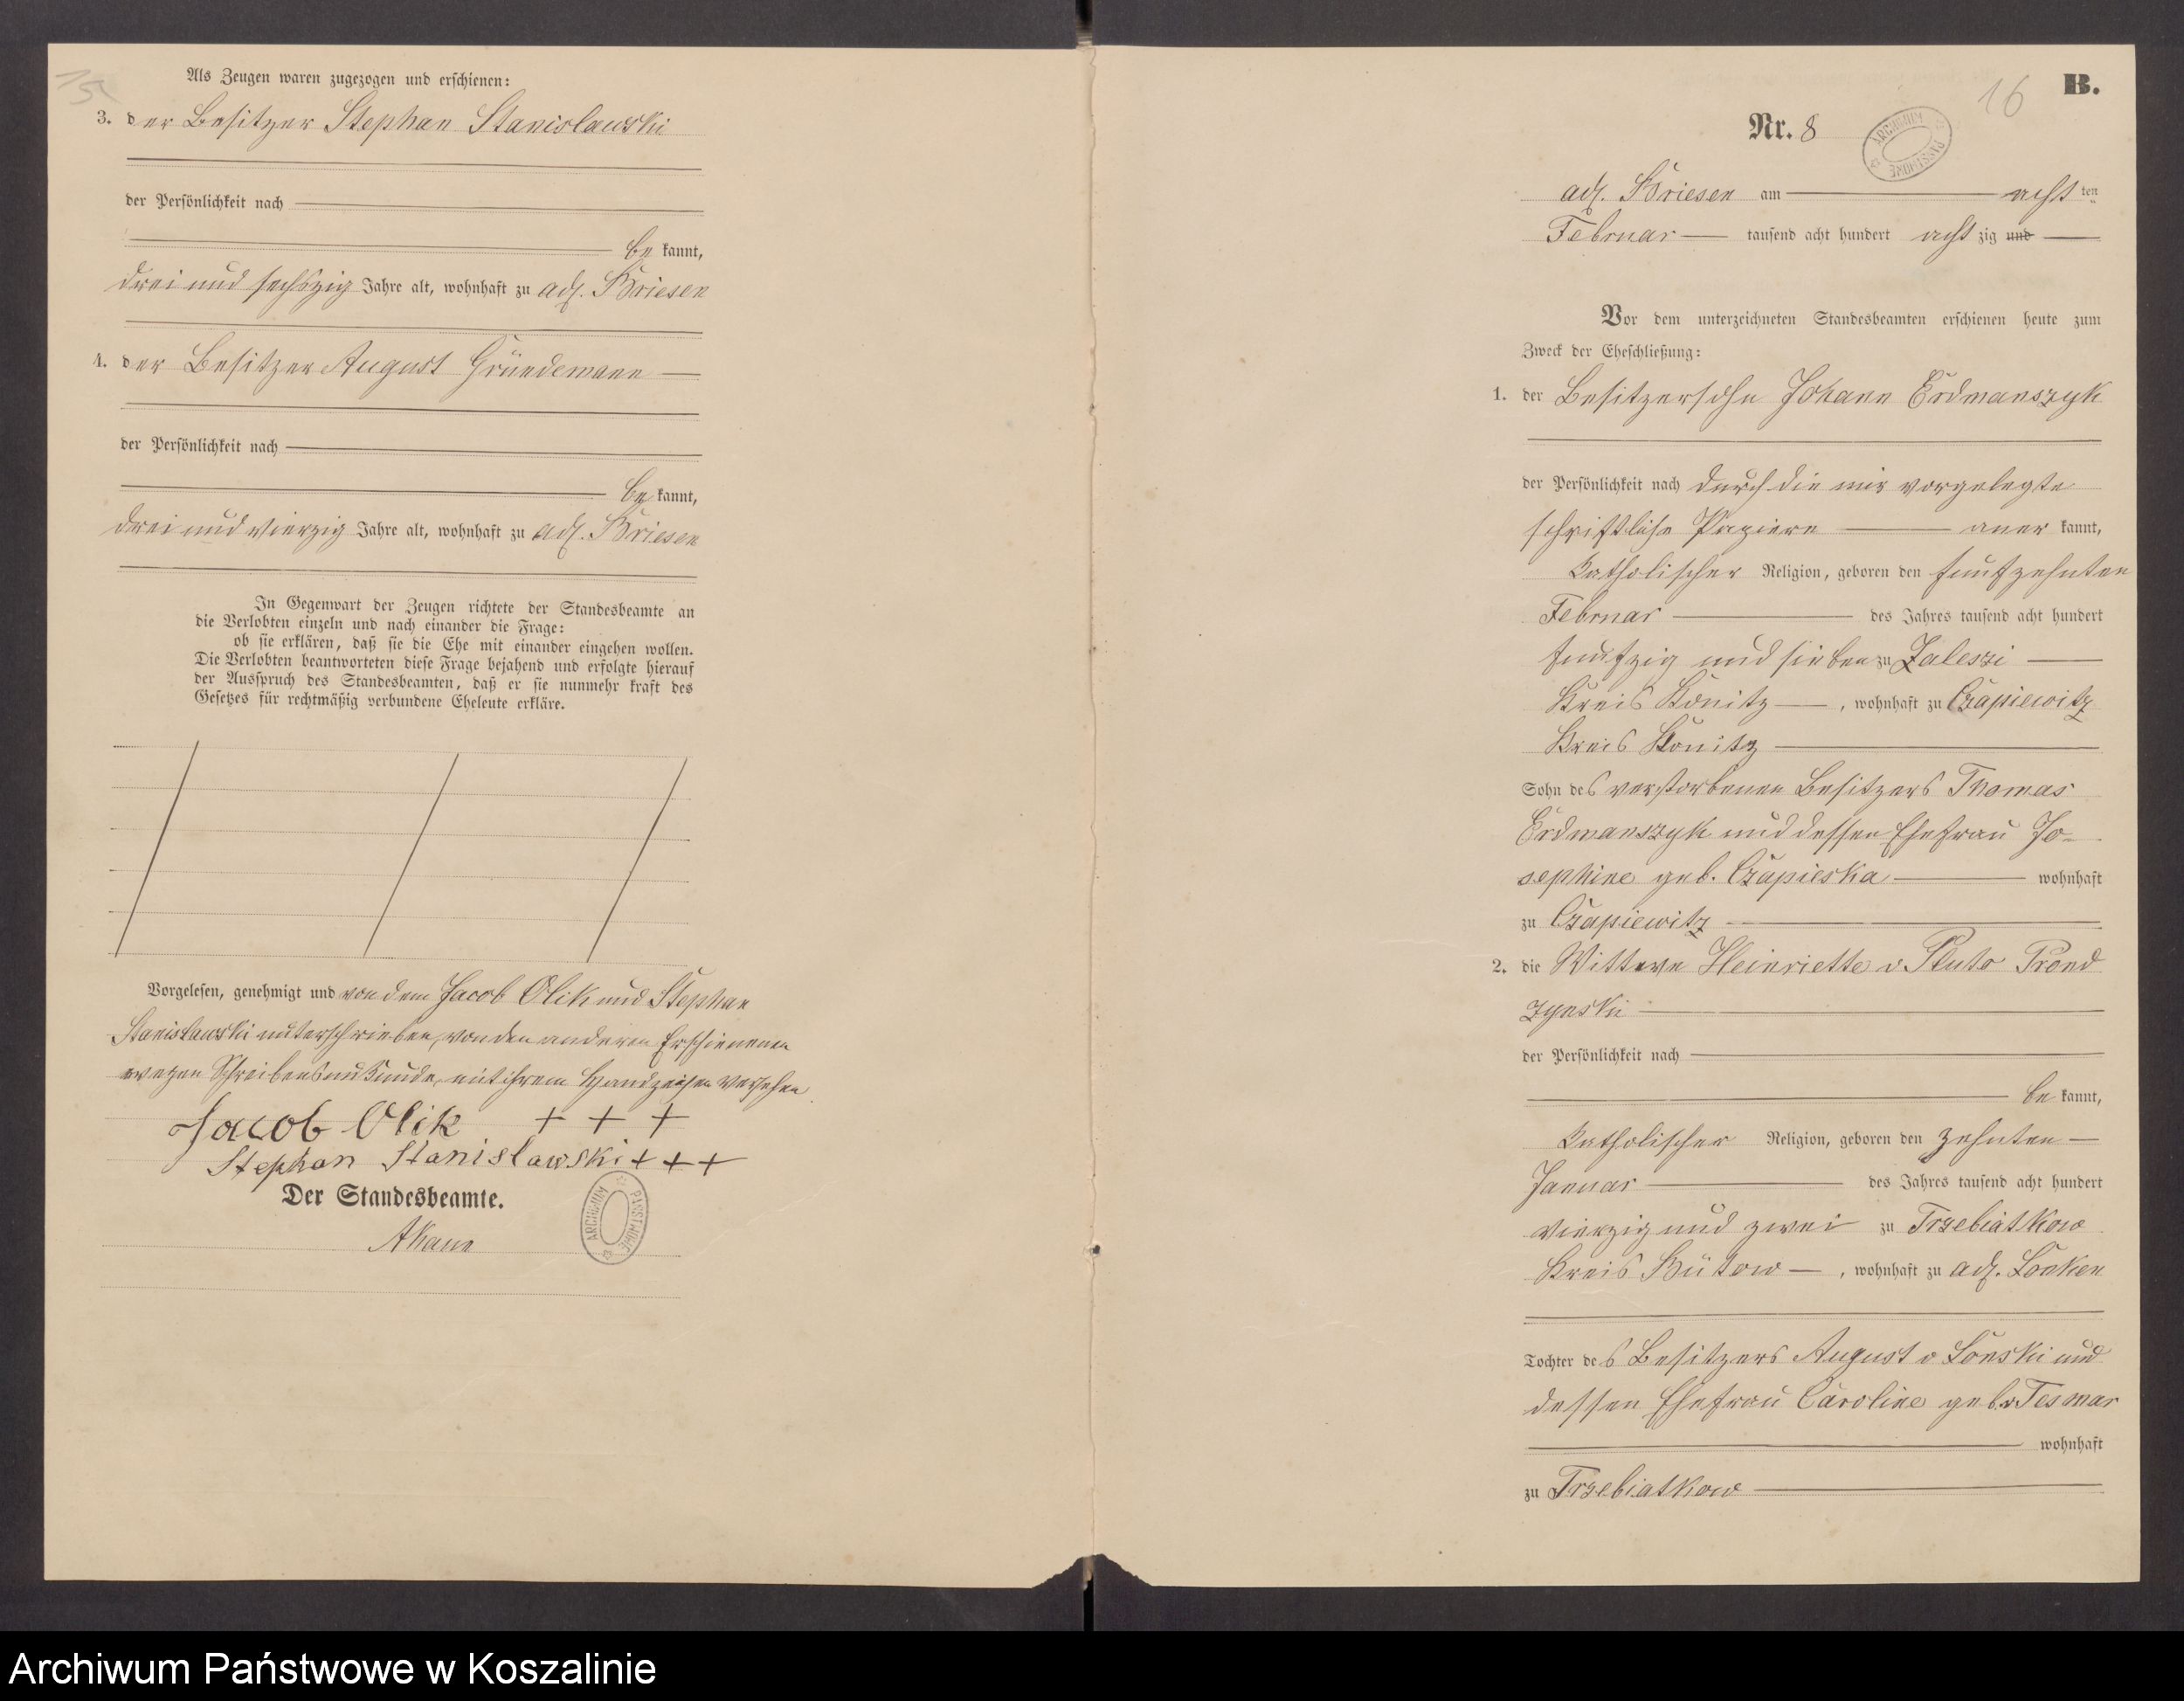 15
Als Zeugen waren zugezogen und erschienen:
3. der Besitzer Stephan Stanislawski
der Persönlichkeit nach
be kannt,
drei und sechszig Jahre alt, wohnhaft zu adl. Briesen
4. der Besitzer August Gründemann
der Persönlichkeit nach
be kannt,
drei und vierzig Jahre alt, wohnhaft zu adl. Briesen
In Gegenwart der Zeugen richtete der Standesbeamte an
die Verlobten einzeln und nach einander die Frage:
ob sie erklären, daß sie die Ehe mit einander eingehen wollen.
Die Verlobten beantworteten diese Frage bejahend und erfolgte hierauf
der Ausspruch des Standesbeamten, daß er sie nunmehr kraft des
Gesetzes für rechtmäßig verbundene Eheleute erkläre.
Vorgelesen, genehmigt und von dem Jacob Olik und Stephan
Stanislawski unterschrieben, von den anderen Erschienenen
wegen Schreibensunkunde, mit ihrem Handzeichen versehen
Jacob Olik + + +
Stephan Stanislawski + + +
Der Standesbeamte.
ARCHIWUM PAŃSTWOWE
B.
16
Nr. 8
ARCHIWUM PAŃSTWOWE
adl. Briesen am acht ten
Februar tausend acht hundert acht zig und
Vor dem unterzeichneten Standesbeamten erschienen heute zum
Zweck der Eheschließung:
1. der Besitzersohn Johann Erdmanszyk
der Persönlichkeit nach durch die mir vorgelegte
schriftliche Papiere aner kannt,
katholischer Religion, geboren den fünfzehnten
Februar des Jahres tausend acht hundert
fünfzig und sieben zu Zaleszi
Kreis Konitz , wohnhaft zu Czapiewitz
Kreis Konitz
Sohn des verstorbenen Besitzers Thomas
Erdmanszyk und dessen Ehefrau Jo-
sephine geb. Czapieska wohnhaft
zu Czapiewitz
2. die Wittwe Heinriette v. Pluto Prond
zynski
der Persönlichkeit nach
be kannt,
katholischer Religion, geboren den zehnten
Januar des Jahres tausend acht hundert
vierzig und zwei zu Trzebiatkow
Kreis Bütow , wohnhaft zu adl. Lonken
Tochter des Besitzers August v Lonski und
dessen Ehefrau Caroline geb. v. Tesmar
wohnhaft
zu Trzebiatkow
Archiwum Państwowe w Koszalinie